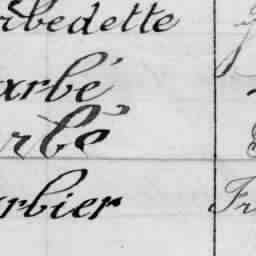 rbedette
arbé
rbé
rbier Fr